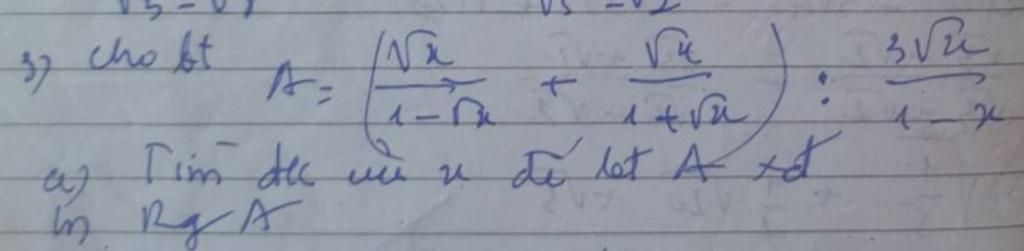 3) Cho bt A = (√x / 1 - √x + √x / 1 + √x) : 3√x / 1 - x
a) Tìm đk của x để bt A xđ
b) Rg A